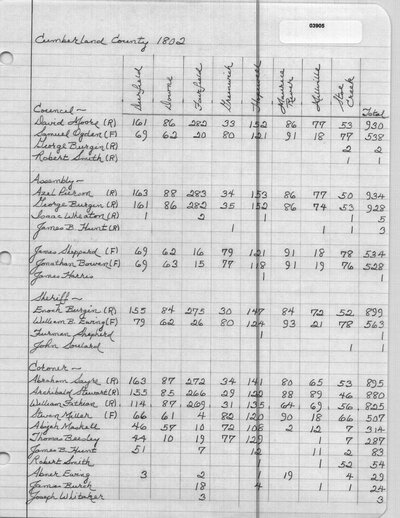 03905
Cumberland County 1802
Deerfield Downe Fairfield Greenwich Hopewell Maurice River Millville Stoe Creek Total
Council ~
David Moore (R) 161 86 282 33 152 86 77 53 930
Samuel Ogden (F) 69 62 20 80 121 91 18 77 538
George Burgin (R) 2 2
Robert Smith (R) 1 1
Assembly ~
Azel Pierson (R) 163 88 283 34 153 86 77 50 934
George Burgin (R) 161 86 282 35 152 86 74 53 928
Isaac Wheaton (R) 1 2 1 1 5
James B. Hunt (R) 1 1 1 3
James Sheppard (F) 69 62 16 79 121 91 18 78 534
Jonathan Bowen (F) 69 63 15 77 118 91 19 76 528
James Harris 1 1
Sheriff ~
Enoch Burgin (R) 155 84 275 30 147 84 72 52 899
William B. Ewing (F) 79 62 26 80 124 93 21 78 563
Furman Shepherd 1 1
John Soulard 1 1
Coroner ~
Abraham Sayre (R) 163 87 272 34 141 80 65 53 895
Archibald Stewart (R) 155 85 266 29 122 88 89 46 880
William Fithian (R) 114 87 269 31 135 64 69 56 825
Steven Miller (F) 66 61 4 82 120 90 18 66 507
Abijah Maskell 46 57 10 72 108 2 12 7 314
Thomas Beesley 44 10 19 77 129 1 7 287
James B. Hunt 51 7 12 11 2 83
Robert Smith 1 1 52 54
Abner Ewing 3 2 1 19 4 29
James Burch 18 4 1 1 24
Joseph Whitaker 3 3